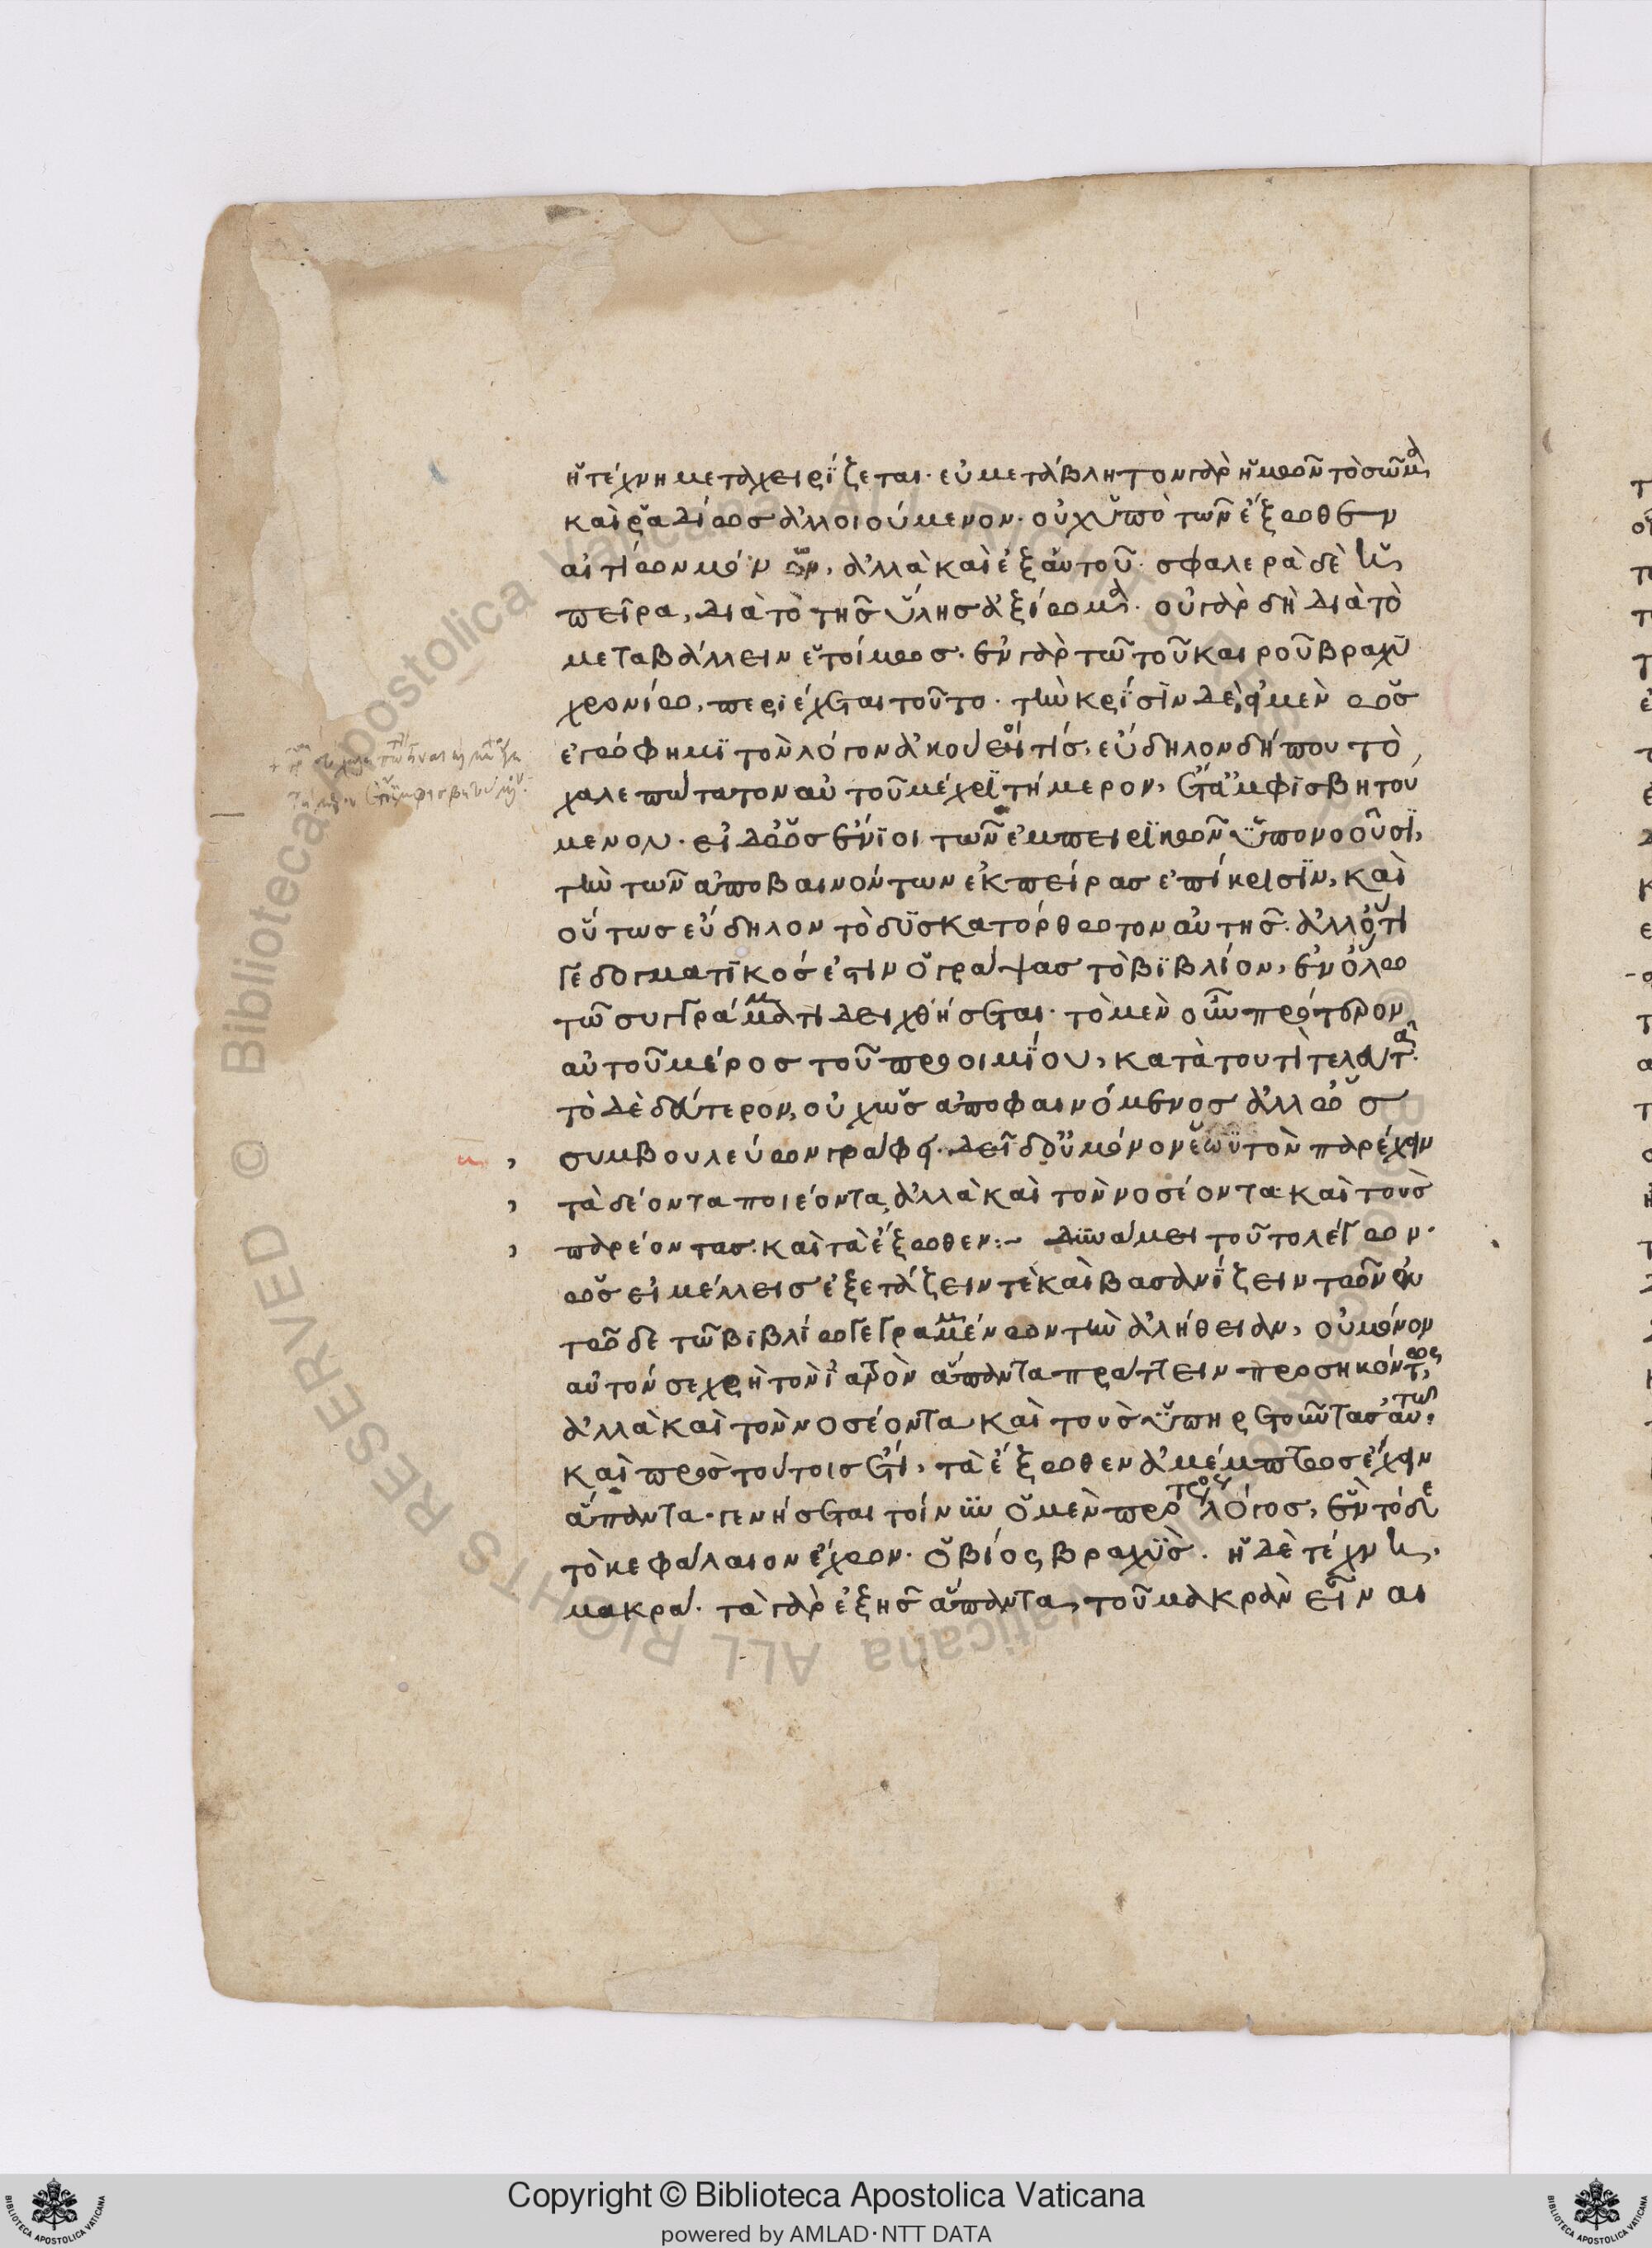 ἡ τέχνη μεταχειρίζεται· εὐμετάβλητον γὰρ ἡμῶν τὸ σῶμα
καὶ ῥαδίως ἀλλοιούμενον· οὐχ ὑπὸ τῶν ἔξωθεν
αἰτίων μόνον, ἀλλὰ καὶ ἐξ αὑτοῦ· σφαλερὰ δὲ ἡ
πεῖρα, διὰ τὸ τῆς ὕλης ἀξίωμα· οὐ γὰρ δὴ διὰ τὸ
μεταβάλλειν ἑτοίμως· ἐν γὰρ τῶ τοῦ καιροῦ βραχυ
χρονίω, περιέχεται τοῦτο· τὴν κρίσιν δὲ, εἰ μὲν ὡς
ἐγώ φημι τὸν λόγον ἀκούει τίς, εὔδηλον δήπου τὸ
χαλεπώτατον αὐτοῦ μέχρι τήμερον, ἔτ' ἀμφισβητου
μενου· εἰ δ' ὡς ἔνιοι τῶν ἐμπειρικῶν ὑπονοοῦσι,
τὴν τῶν ἀποβαινόντων ἐκ πείρας ἐπίκρισιν, καὶ
οὕτως εὔδηλον τὸ δυσκατόρθωτον αὐτῆς· ἀλλ' ὅτι
γε δογματικός ἐστιν ὁ γράψας τὸ βιβλίον, ἐν ὅλω
τῶ συγγράμματι δειχθήσεται· τὸ μὲν οὖν πρότερον
αὐτοῦ μέρος τοῦ προοιμίου, κατὰ τουτὶ τελευτᾶ·
τὸ δὲ δεύτερον, οὐχ ὡς ἀποφαινόμενος ἀλλ' ὡς
συμβουλεύων γράφει· δεῖ δὲ οὐ μόνον ἑωϋτὸν παρέχειν
τὰ δέοντα ποιέοντα, ἀλλὰ καὶ τὸν νοσέοντα καὶ τοὺς
παρέοντας· καὶ τὰ ἔξωθεν:~ δυνάμει τοῦτο λέγων·
ὡς εἰ μέλλεις ἐξετάζειν τὲ καὶ βασανίζειν τῶν ἐν
τῶδε τῶ βιβλίω γεγραμμένων τὴν ἀλήθειαν, οὐ μόνον
αὐτόν σε χρὴ τὸν ἰατρὸν ἅπαντα πράττειν προσηκόντως,
ἀλλὰ καὶ τὸν νοσέοντα καὶ τοὺς ὑπηρετοῦντας αὐτῶ·
καὶ πρὸς τούτοις ἔτι, τὰ ἔξωθεν ἀμέμπτως ἔχειν
ἅπαντα· γενήσεται τοίνυν ὁ μὲν πρότερος λόγος, ἓν τόδε
τὸ κεφάλαιον ἔχων· ὁ βίος βραχὺς· ἡ δὲ τέχνη·
μακρά· τὰ γὰρ ἐξῆς ἅπαντα, τοῦ μακρὰν εἶναι
Copyright © Biblioteca Apostolica Vaticana
powered by AMLAD·NTT DATA